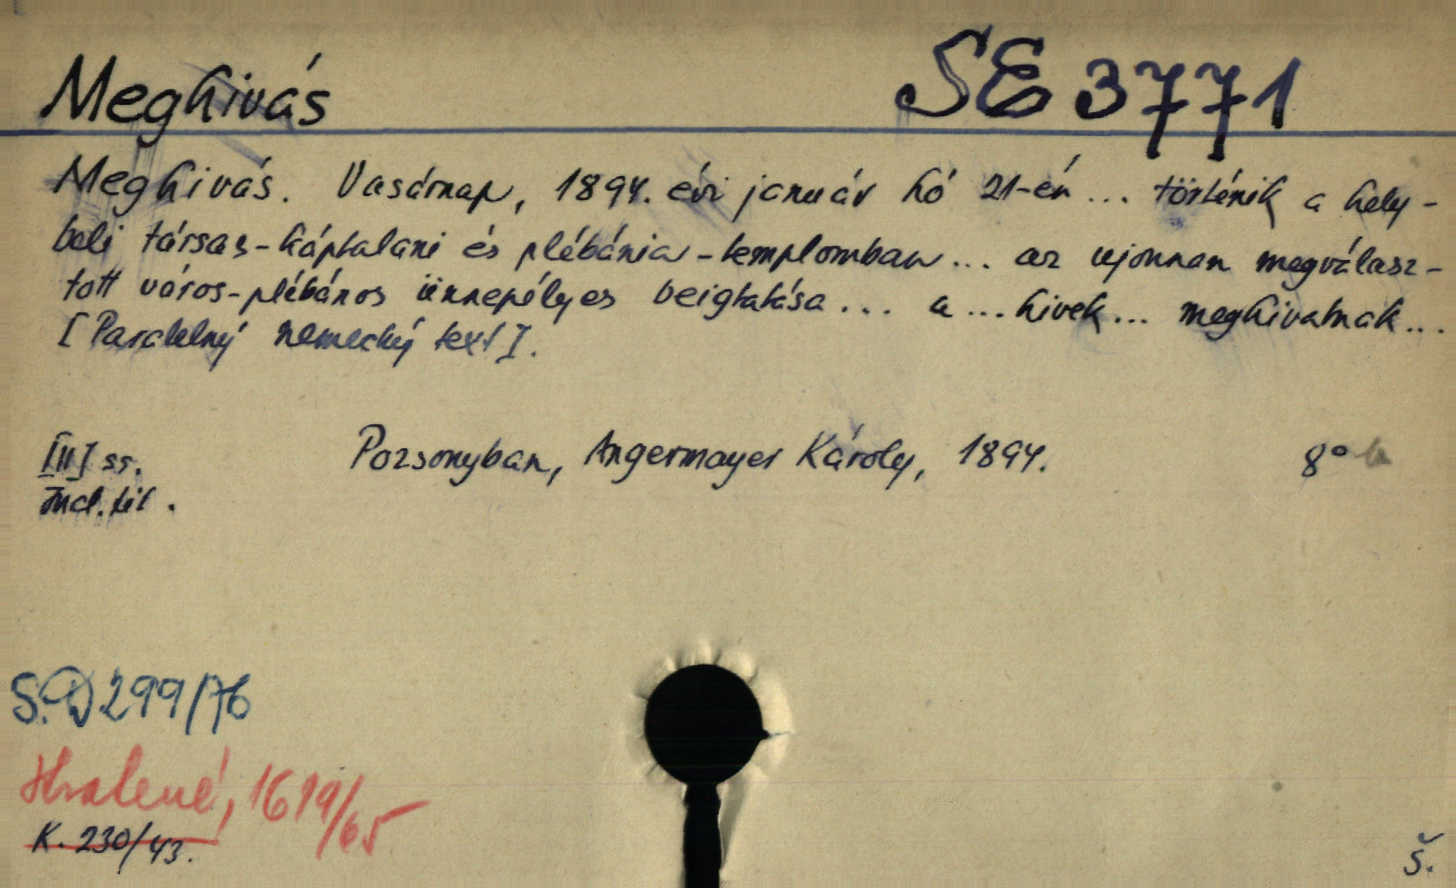 Meghivás
SE 3771
Meghivás. Vasárnap, 1894. évi január hó 21-én... történik a hely-
beli társas-káptalani és plébánia-templomban... az ujonnan megválasz-
tott város-plébános ünnepélyes beigtatása... a... hivek... meghivatnak...
[Paralelný nemecký text].
[II] ss.
Pozsonyban, Angermayer Károly, 1894.
8°
Incl. tit.
S.D 299/76
Hratené, 1619/65
K. 230/43.
Š.